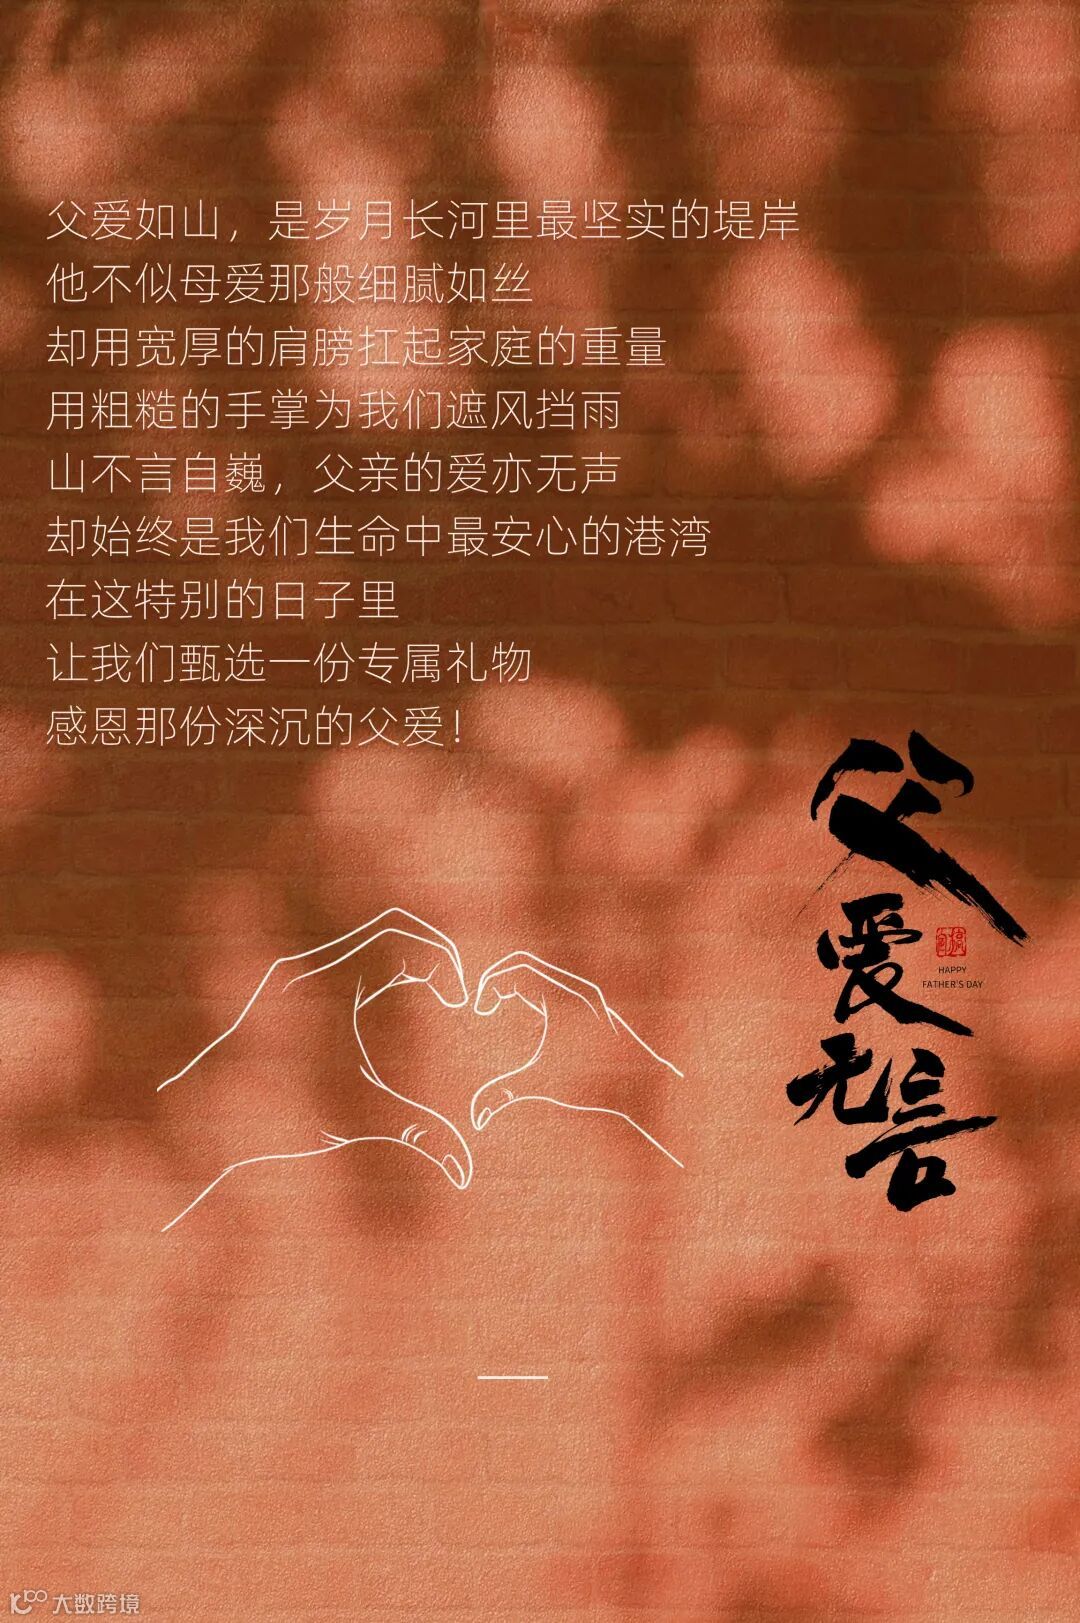 父爱如山，是岁月长河里最坚实的堤岸
他不似母爱那般细腻如丝
却用宽厚的肩膀扛起家庭的重量
用粗糙的手掌为我们遮风挡雨
山不言自巍，父亲的爱亦无声
却始终是我们生命中最安心的港湾
在这特别的日子里
让我们甄选一份专属礼物
感恩那份深沉的父爱！
父爱无言
HAPPY
FATHER'S DAY
大数跨境